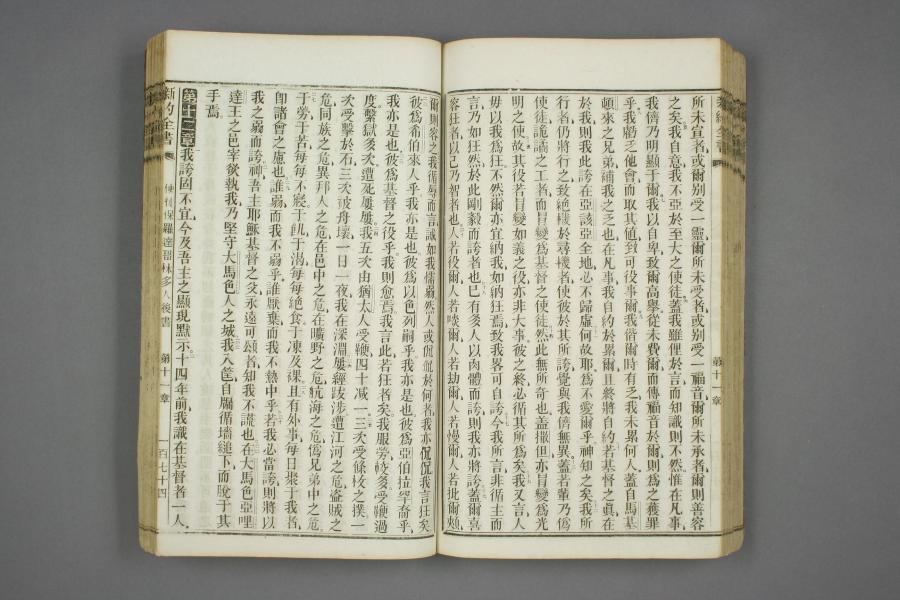 所未宣者或爾別受一靈爾所未受者或別受一福音爾所未承者爾則善容
之矣我自意我不亞於至大之使徒蓋我雖俚於言而知識則不然惟在凡事
我儕乃明顯于爾我以自卑致爾高舉從未費爾而傳福音於爾則為之獲罪
乎我虧乏他會而取其値致可役事爾我偕爾時有乏我未累何人蓋自馬基
頓來之兄弟補我之乏也在凡事我自約於累爾且終將自約若基督之眞在
於我則我此誇在亞該亞全地必不歸虛何故耶為不愛爾乎神知之矣我所
行者仍將行之致絕機於尋機者使彼於其所誇覺與我儕無異蓋若輩乃僞
使徒詭譎之工者而冒變為基督之使徒然此無所奇也蓋撒但亦冒變為光
明之使故其役若冒變如義之役亦非大事彼之終必循其所為矣我又言人
毋以我為狂不然爾亦宜納我如納狂焉致我畧可自誇今我所言非循主而
言乃如狂然於此剛毅而誇者也已有多人以肉體而誇則我亦將誇蓋爾喜
容狂者以己乃智者也人若役爾人若啖爾人若劫爾人若慢爾人若批爾頰
爾則容之我循辱而言誠如我懦弱然人或侃侃於何者我亦侃侃我言狂矣
彼為希伯來人乎我亦是也彼為以色列嗣乎我亦是也彼為亞伯拉罕裔乎
我亦是也彼為基督之役乎我則愈焉我言此若狂者矣我服勞較多受鞭過
度繫獄多次遭死屢屢我五次由猶太人受鞭四十減一三次受條杖之撲一
次受擊於石三次被舟壞一日一夜我在深淵屢經跋涉遭江河之危盜賊之
危同族之危異邦人之危在邑中之危在曠野之危航海之危僞兄弟中之危
于勞于苦每每不寢于飢于渴每每絕食于凍及裸且有外事每日聚于我者
卽諸會之慮也誰弱而我不弱乎誰厭棄而我不熱中乎若我必當誇則將以
我之弱而誇神吾主耶穌基督之父永遠可頌者知我不謊也在大馬色亞哩
達王之邑宰欲執我乃堅守大馬色人之城我入筐自牖循墻縋下而脫于其
手焉
第十二章我誇固不宜今及吾主之顯現默示十四年前我識在基督者一人
新約全書 使徒保羅達哥林多人後書 第十一章 一百七十四